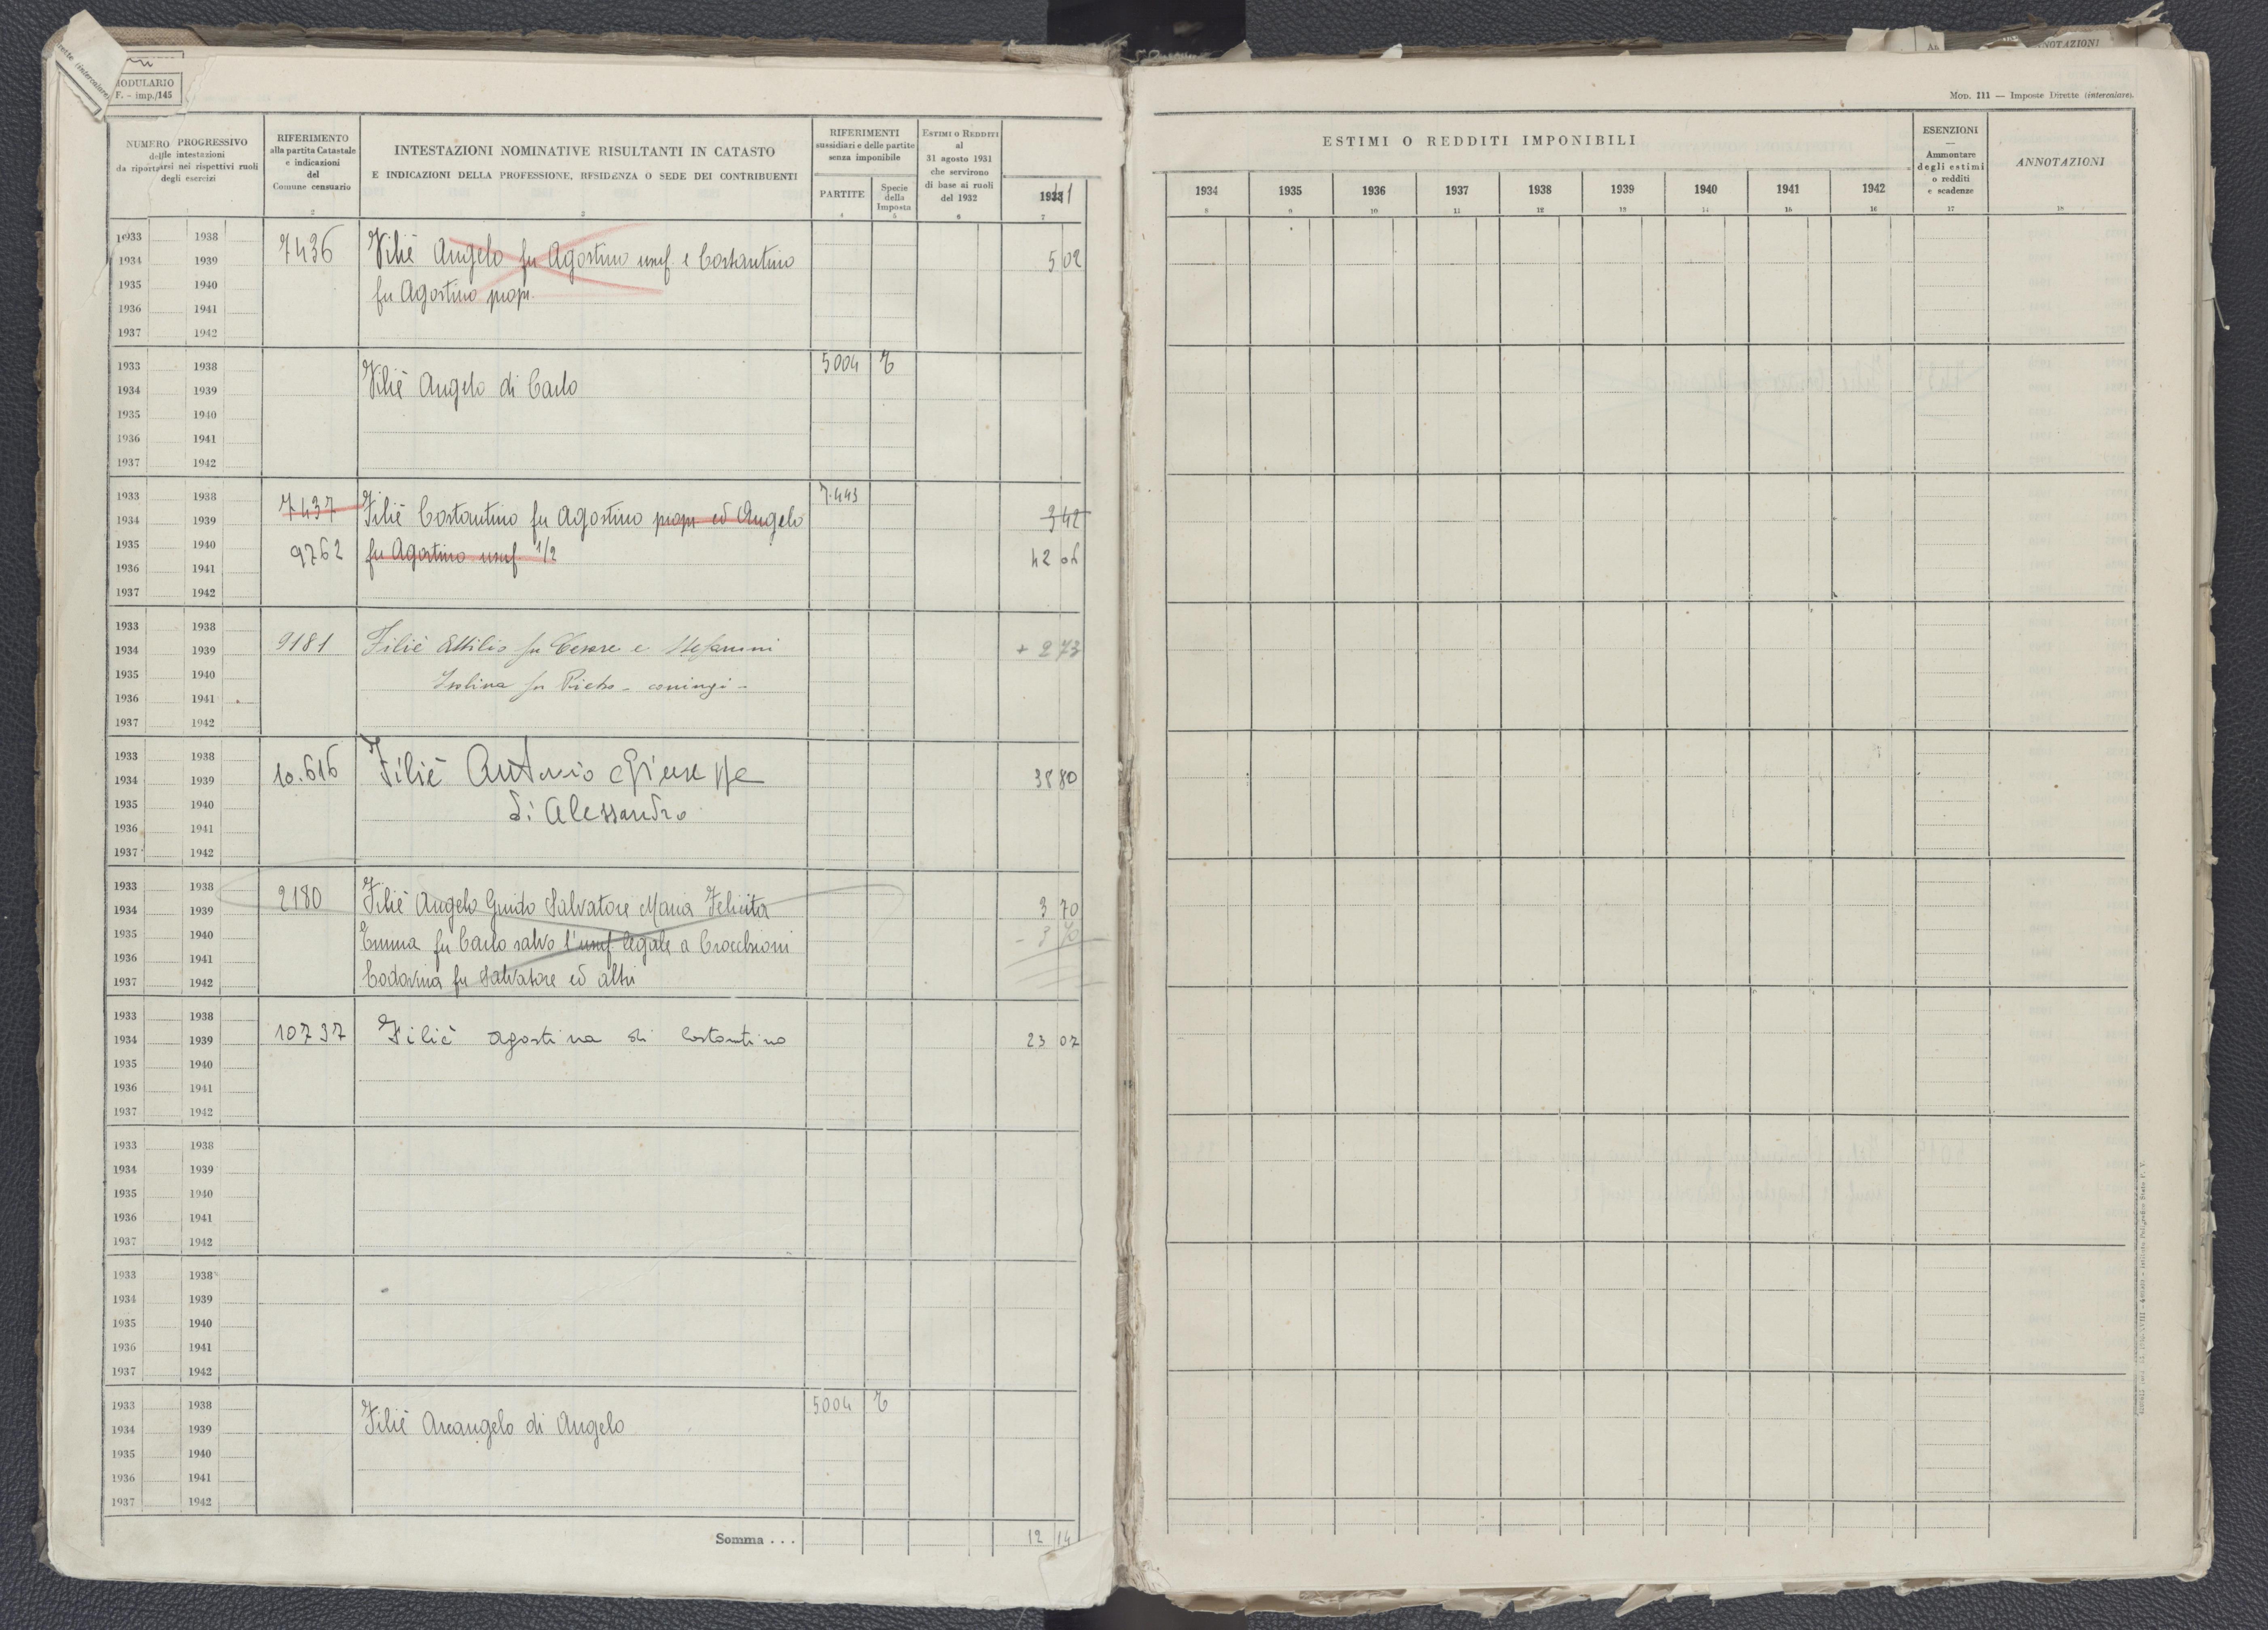 rette (intercalare)
MODULARIO
F. - imp./145
NUMERO PROGRESSIVO
delle intestazioni
da riportarsi nei rispettivi ruoli
degli esercizi
RIFERIMENTO
alla partita Catastale
e indicazioni
del
Comune censuario
2
INTESTAZIONI NOMINATIVE RISULTANTI IN CATASTO
E INDICAZIONI DELLA PROFESSIONE, RESIDENZA O SEDE DEI CONTRIBUENTI
3
RIFERIMENTI
sussidiari e delle partite
senza imponibile
PARTITE
4
Specie
della
Imposta
5
ESTIMI O REDDITI
al
31 agosto 1931
che servirono
di base ai ruoli
del 1932
6
1941
7
1933 1938 7436 Filiè Angelo fu Agostino usuf. e Costantino
1934 1939 5 02
1935 1940 fu Agostino propr.
1936 1941
1937 1942
1933 1938 5004 T
1934 1939 Filiè Angelo di Carlo
1935 1940
1936 1941
1937 1942
1933 1938 7437 7.443
1934 1939 Filiè Costantino fu Agostino propr ed Angelo 342
1935 1940 9762 fu Agostino usuf 1/2
1936 1941 42 06
1937 1942
1933 1938
1934 1939 9181 Filiè Attilio fu Cesare e Stefanini + 2 73
1935 1940 fu Pietro - coniugi -
1936 1941
1937 1942
1933 1938
1934 1939 10.616 Filiè Antonio Giuseppe 38 80
1935 1940 di Alessandro
1936 1941
1937 1942
1933 1938 2180
1934 1939 Filiè Angelo Guido Salvatore Maria Felicita 3 70
1935 1940 Emma fu Carlo salvo l'usuf legale a Crocchioni - 3 70
1936 1941
1937 1942 fu Salvatore ed altri
1933 1938
1934 1939 10737 Filiè Agostina di Costantino 23 07
1935 1940
1936 1941
1937 1942
1933 1938
1934 1939
1935 1940
1936 1941
1937 1942
1933 1938
1934 1939
1935 1940
1936 1941
1937 1942
1933 1938 5004 T
1934 1939 Filiè Arcangelo di Angelo
1935 1940
1936 1941
1937 1942
Somma . . . 12 14
ANNOTAZIONI
MOD. 111 — Imposte Dirette (intercalare).
ESTIMI O REDDITI IMPONIBILI
1934 1935 1936 1937 1938 1939 1940 1941 1942
8 9 10 11 12 13 14 15 16
ESENZIONI
—
Ammontare
degli estimi
o redditi
e scadenze
17
ANNOTAZIONI
18